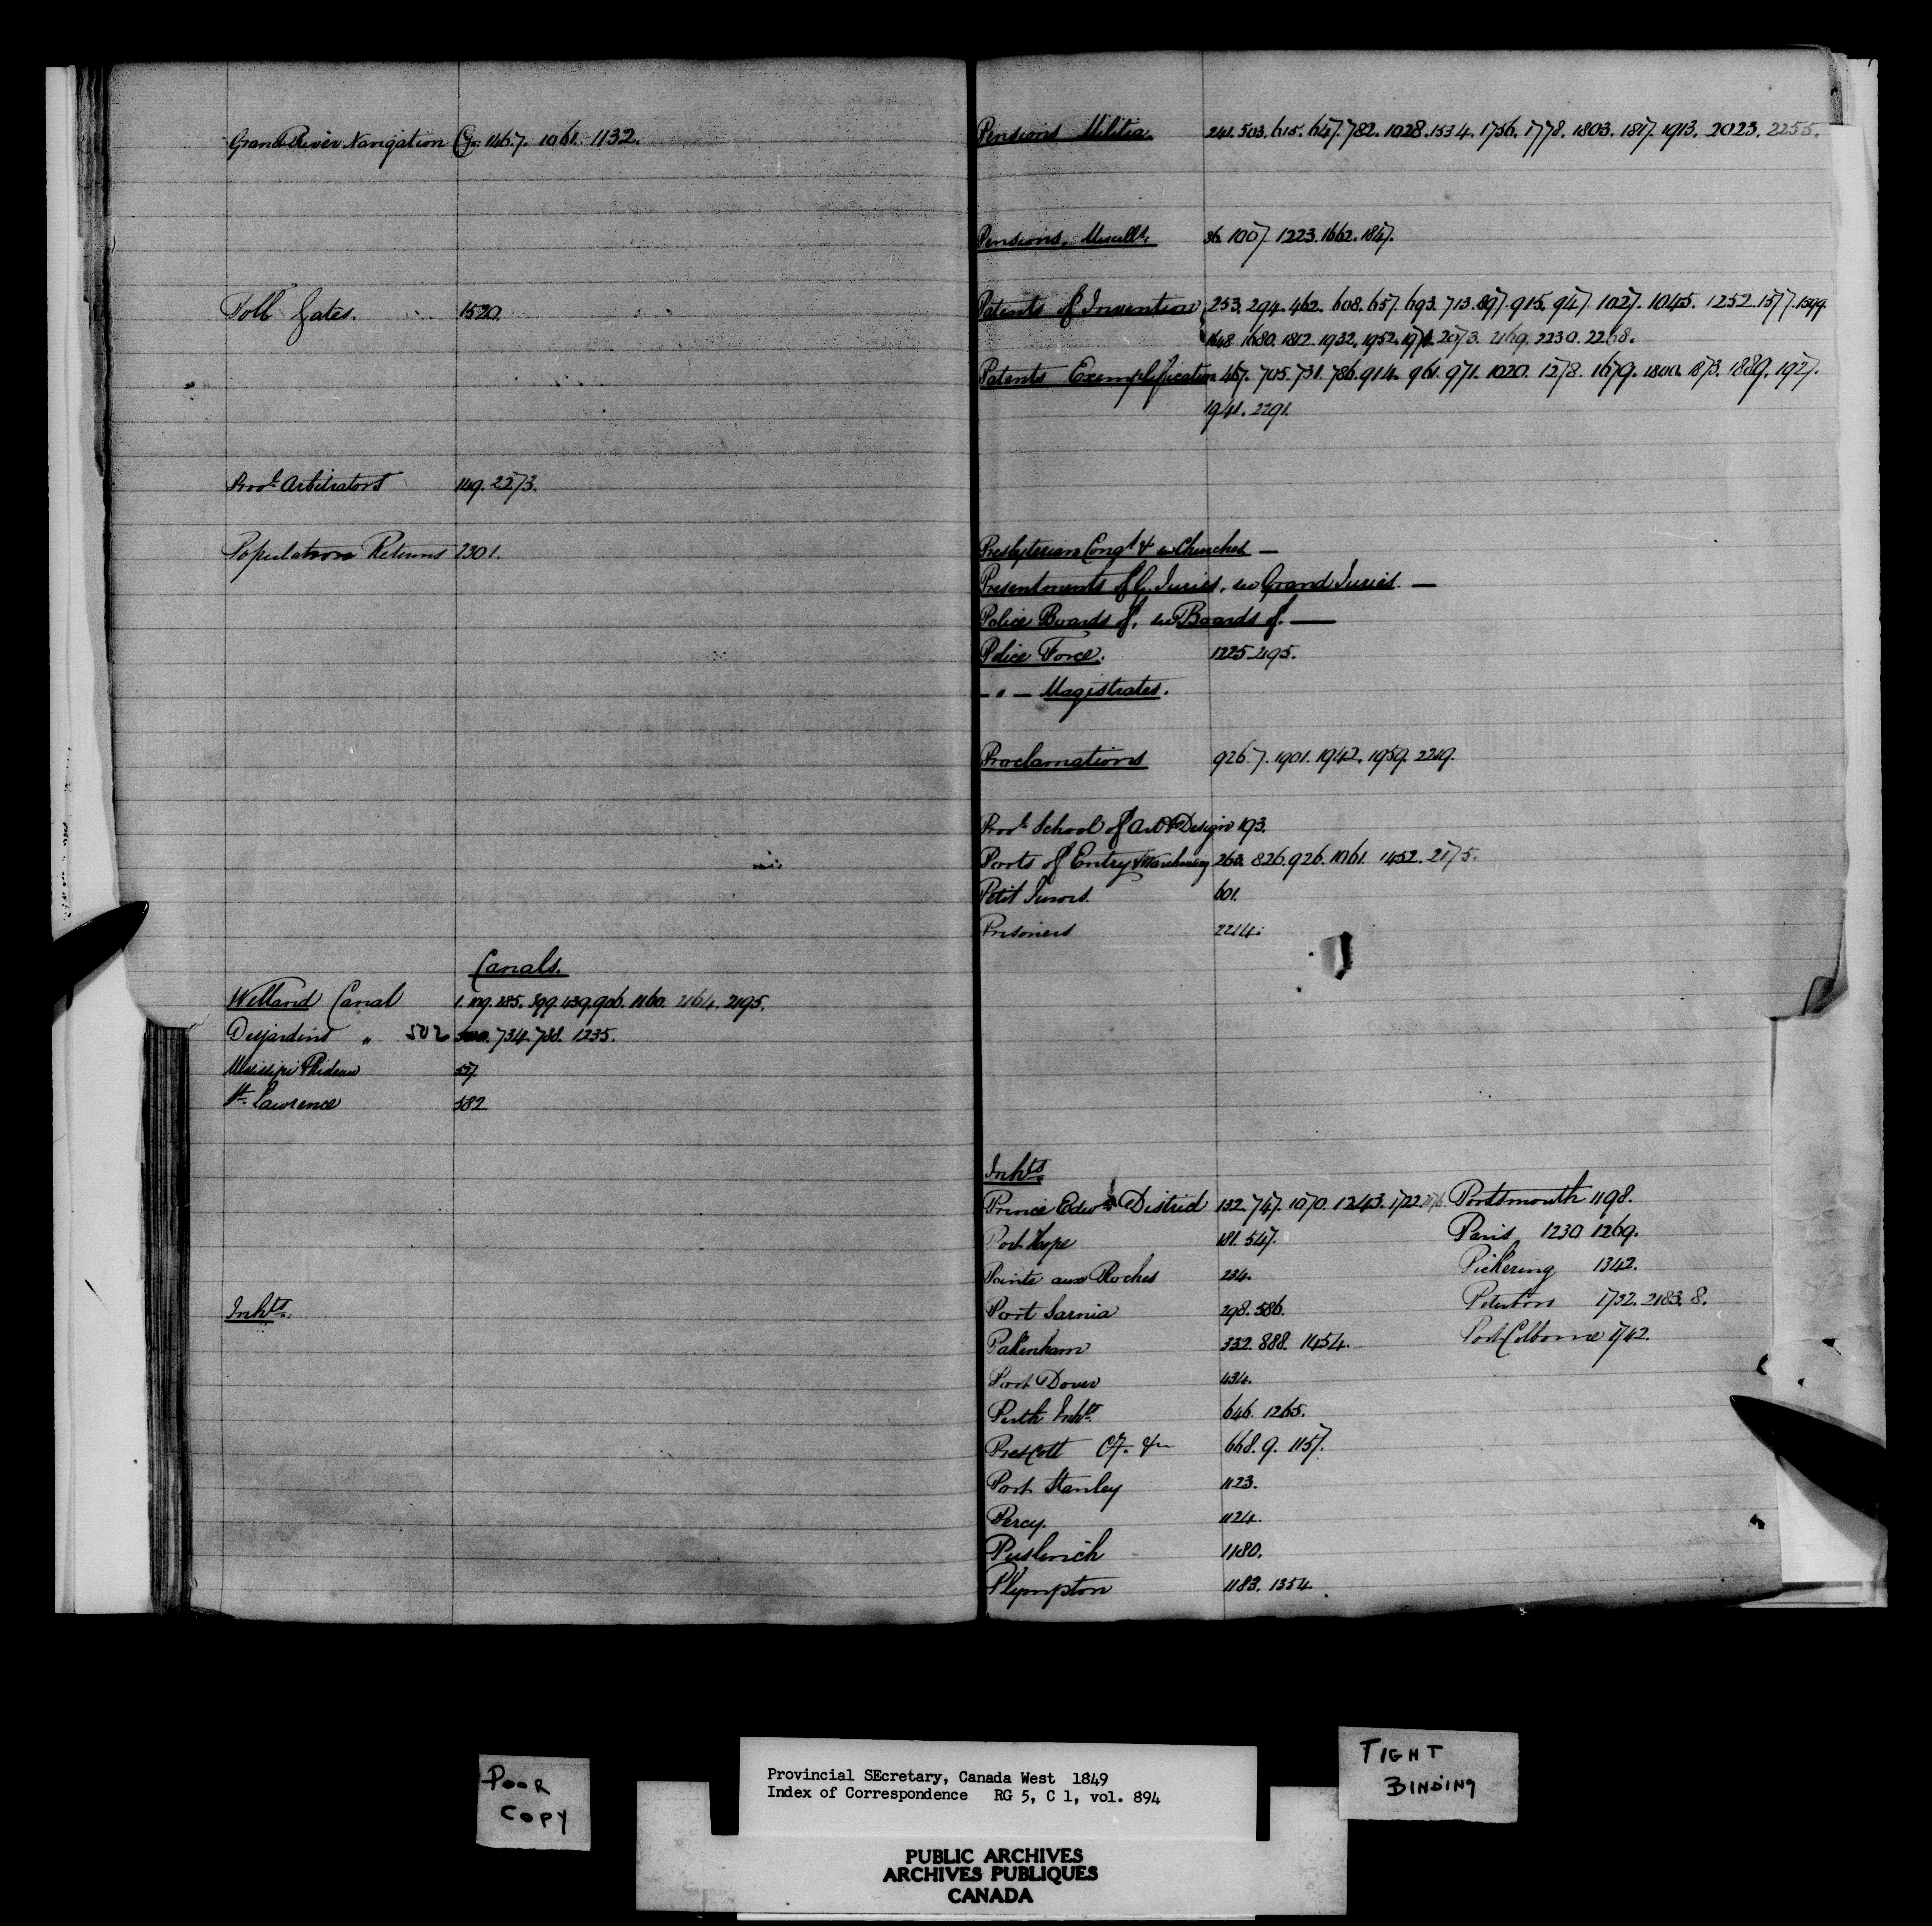 Grand River Navigation Co. 146.7. 1061. 1132.
Toll Gates. 1520.
Provl. Arbitrators 149. 2273.
Population Returns 2301.
Canals.
Welland Canal 1. 119. 285. 399. 439. 906. 1160. 2164. 2195.
Desjardins " 502 734. 788. 1235.
Missisipi & Rideau 557
St. Lawrence 582
Inhts.
Pensions Militia. 241. 503. 615. 647. 782. 1028. 1534. 1756. 1778. 1803. 1817. 1913. 2023. 2255.
Pensions, Miscells. 36. 1007. 1223. 1662. 1847.
Patents of Invention 253. 294. 462. 608. 657. 693. 713. 897. 915. 947. 1027. 1045. 1252. 1577. 1599.
1648 1680. 1812. 1932. 1952. 1971. 2073. 2169. 2230. 2268.
Patents Exemplification 467. 705. 731. 786. 914. 961. 971. 1020. 1278. 1679. 1800. 1873. 1889. 1927.
1941. 2291.
Presbyterian Congt. & see Churches —
Presentments of G. Juries, see Grand Juries. —
Police Boards of, see Boards of. —
Police Force. 1225. 2195.
— " — Magistrates.
Proclamations 926.7. 1901. 1942. 1959. 2219.
Provl. School of Art & Design 193.
Ports of Entry & Warehousing 263. 826. 926. 1061. 1452. 2175.
Petit Jurors. 601.
Prisoners 2214.
Inhts.
Prince Edwd. District 132. 747. 1070. 1243. 1722. Portsmouth 1198.
Port Hope 181. 547. Paris 1230. 1269.
Pointe aux Roches 234. Pickering 1342.
Port Sarnia 298. 586. Peterboro 1732. 2183. 8.
Pakenham 332. 888. 1454. Port Colborne 1742.
Port Dover 434.
Perth Inhts. 646. 1265.
Prescott 668. 9. 1157.
Port Stanley 1123.
Percy. 1124.
Puslinch 1180.
Plympton 1183. 1354.
POOR
COPY
Provincial SEcretary, Canada West 1849
Index of Correspondence RG 5, C 1, vol. 894
TIGHT
BINDING
PUBLIC ARCHIVES
ARCHIVES PUBLIQUES
CANADA